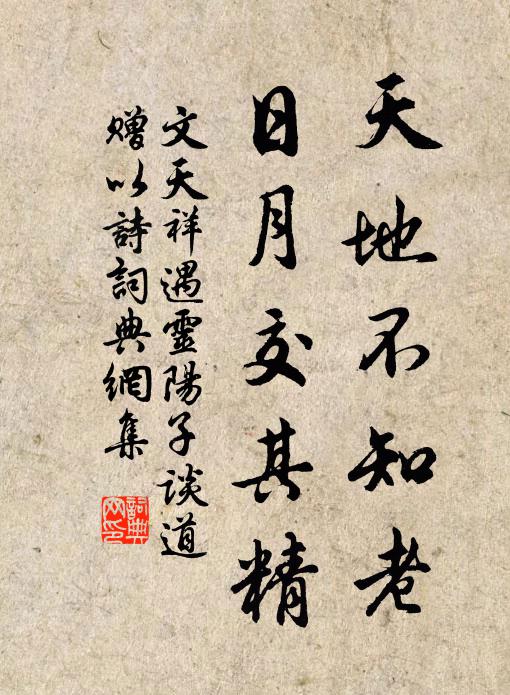 天地不知老
日月交其精
文天祥遇靈陽子談道
贈以詩詞典網集
詞典
网印